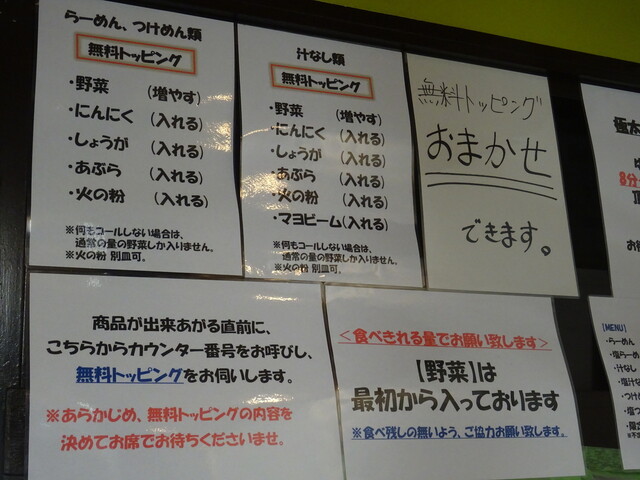 らーめん、つけめん類
無料トッピング
・野菜 (増やす)
・にんにく (入れる)
・しょうが (入れる)
・あぶら (入れる)
・火の粉 (入れる)
※何もコールしない場合は、
通常の量の野菜しか入りません。
※火の粉 別皿可。
汁なし類
無料トッピング
・野菜 (増やす)
・にんにく (入れる)
・しょうが (入れる)
・あぶら (入れる)
・火の粉 (入れる)
・マヨビーム(入れる)
※何もコールしない場合は、
通常の量の野菜しか入りません。
※火の粉 別皿可。
無料トッピング
おまかせ
できます。
極太
8分
商品が出来あがる直前に、
こちらからカウンター番号をお呼びし、
無料トッピングをお伺いします。
※あらかじめ、無料トッピングの内容を
決めてお席でお待ちくださいませ。
<食べきれる量でお願い致します>
【野菜】は
最初から入っております
※食べ残しの無いよう、ご協力お願い致します。
【MENU】
・らーめん
・塩らーめ
・汁なし
・塩汁な
・つけめ